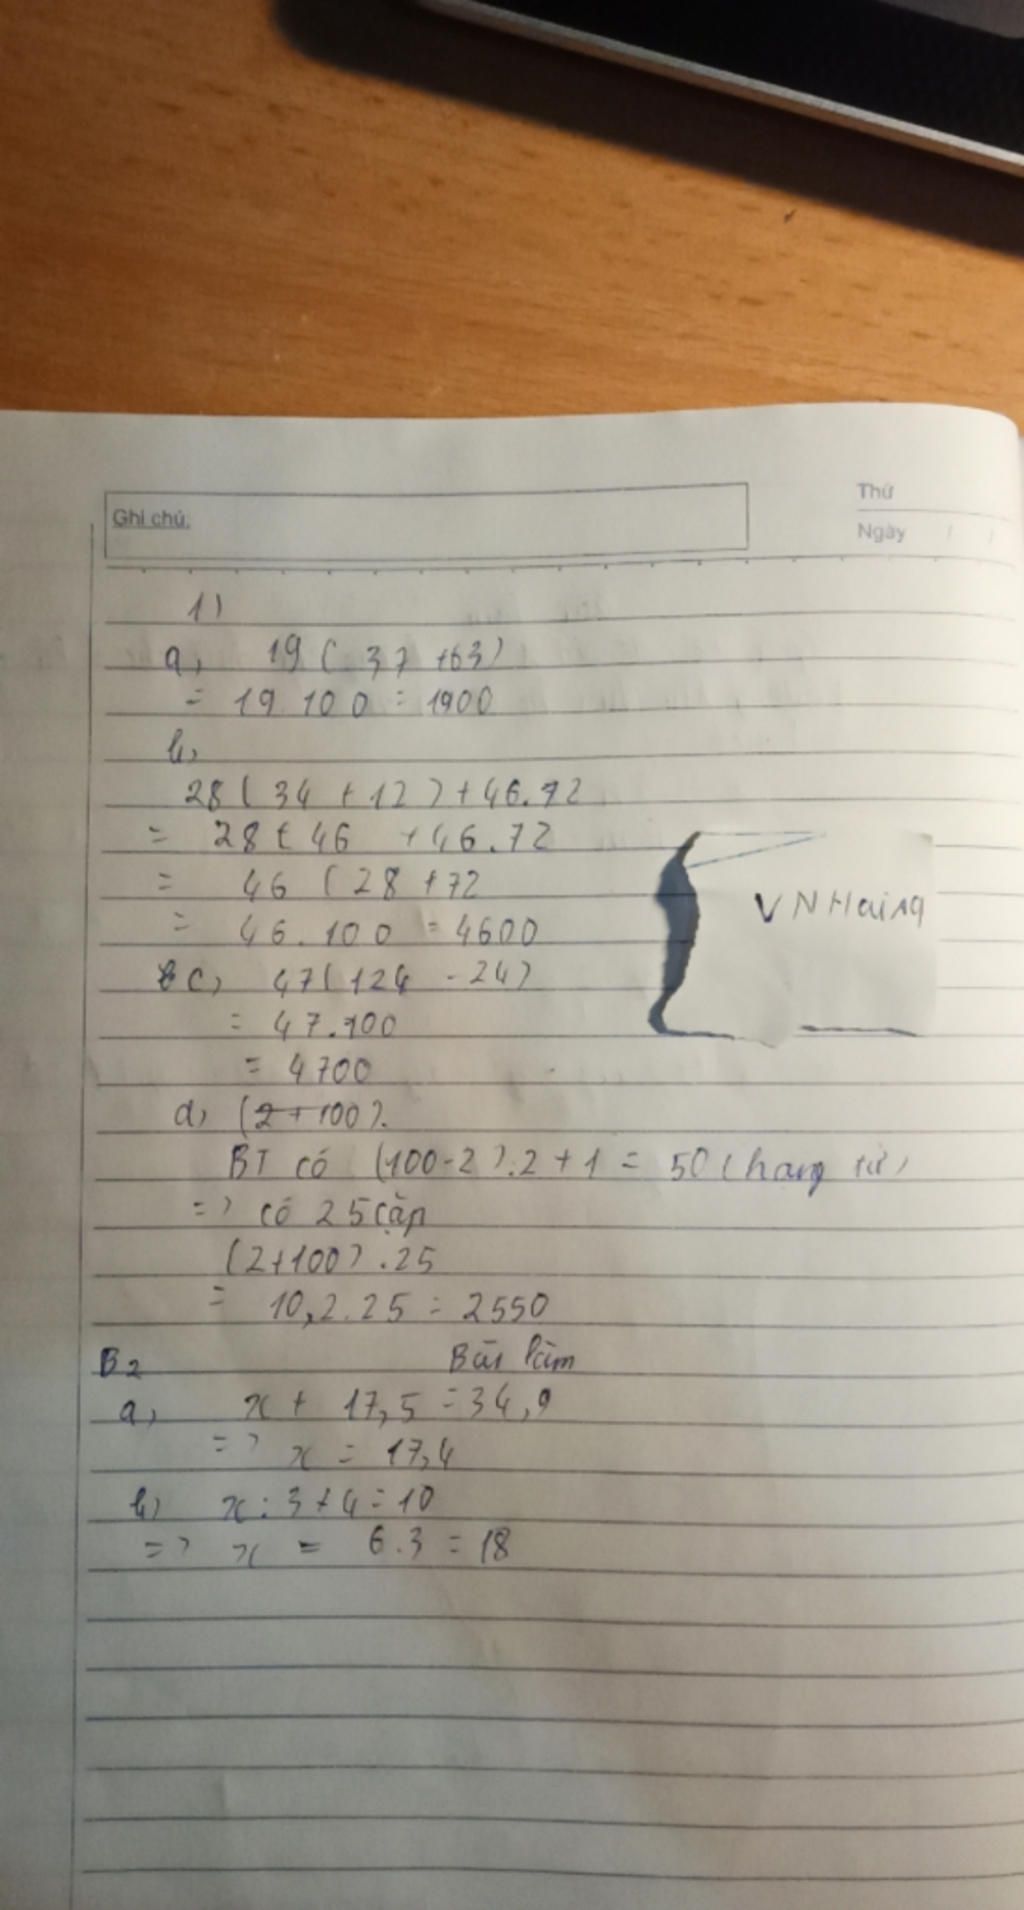 Ghi chú:
Thứ
Ngày / /
1)
a, 19 ( 37 +63)
= 19 100 = 1900
b,
28 ( 34 + 12 ) + 46.72
= 28 ( 46 + 46.72
= 46 ( 28 + 72
= 46.100 = 4600
c, 47( 124 - 24)
= 47.100
= 4700
d, (2+100).
BT có (100-2):2+1 = 50 (hạng tử)
=> có 25 cặp
(2+100).25
= 10,2.25 = 2550
B2 Bài làm
a, x + 17,5 = 34,9
=> x = 17,4
b) x : 3 + 4 = 10
=> x = 6.3 = 18
VNHaiAq